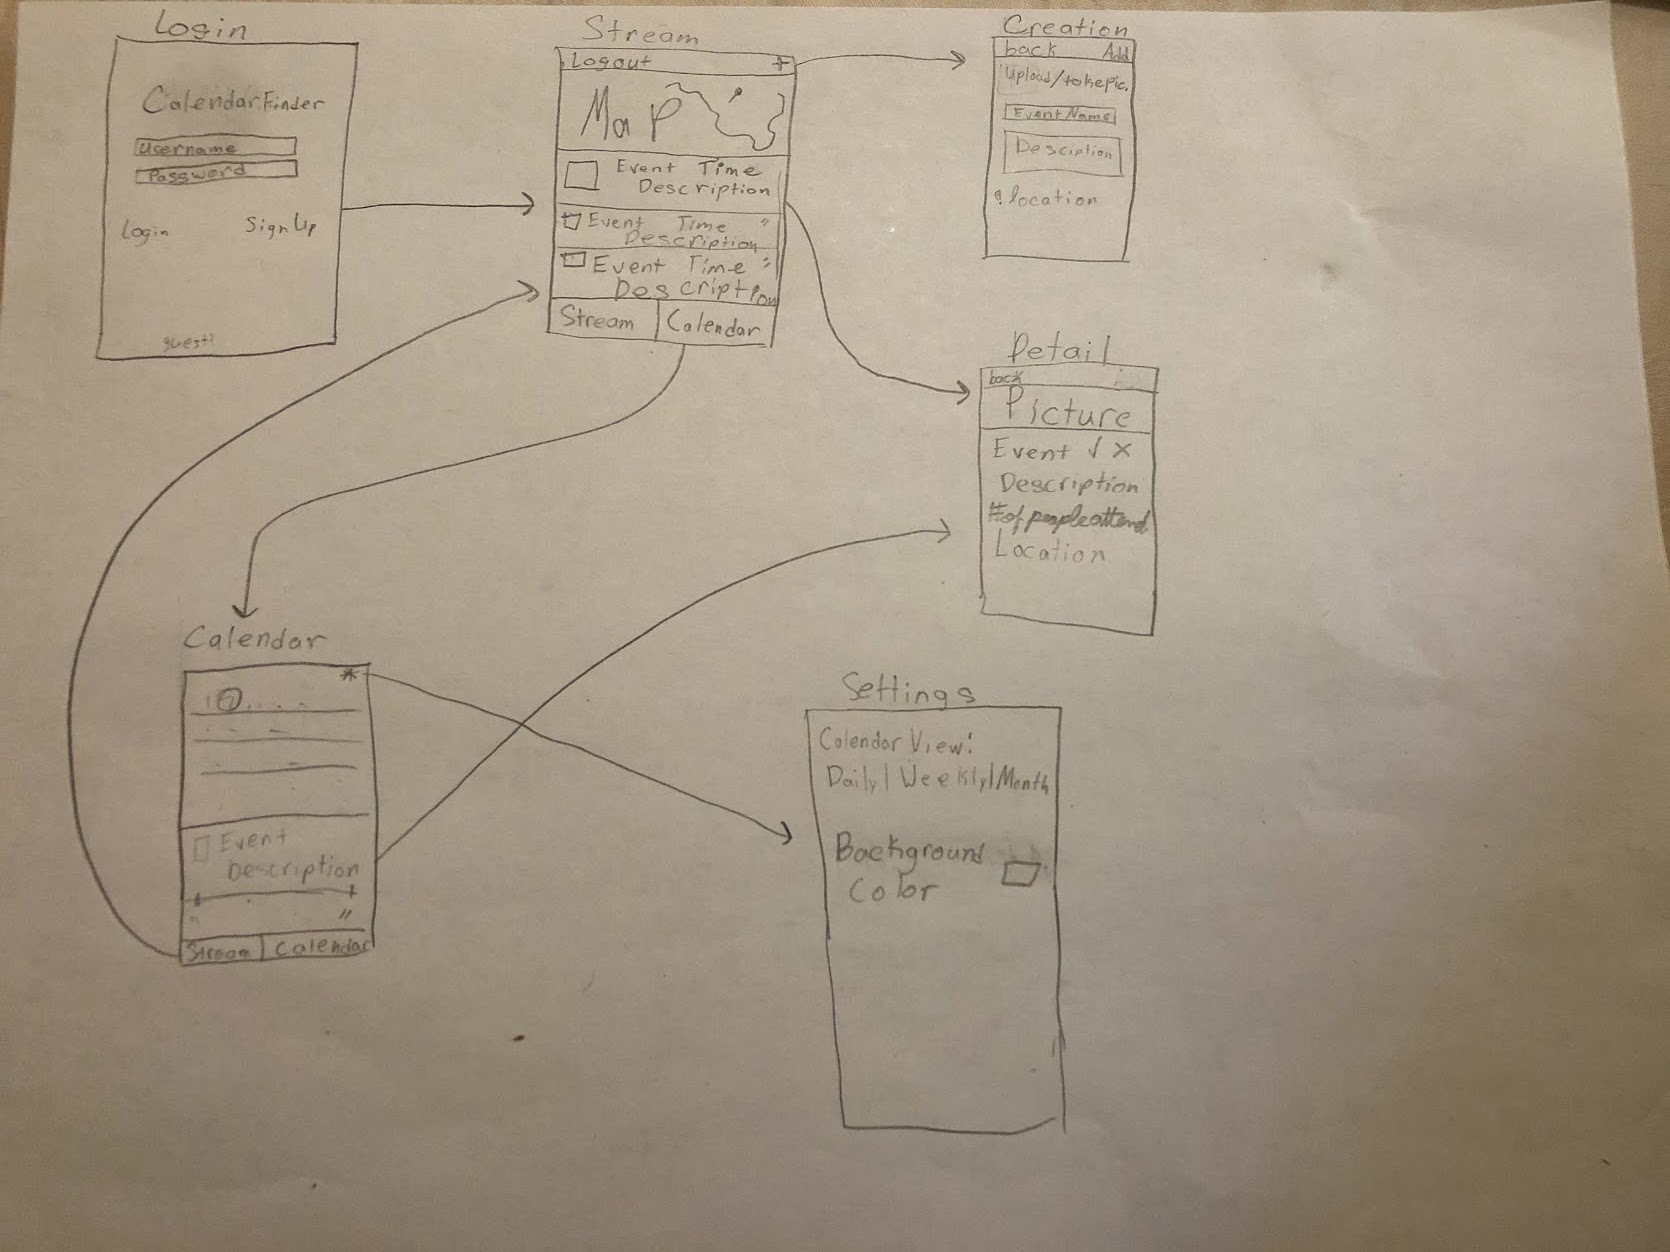 Login
CalendarFinder
Username
Password
Login SignUp
guest!
Stream
Logout +
Map
Event Time
Description
Event Time "
Description
Event Time "
Description
Stream Calendar
Creation
back Add
Upload/takepic.
EventName
Desciption
location
Detail
back
Picture
Event √ X
Description
#of people attend
Location
Calendar
*
Event
Description
"
Stream Calendar
Settings
Calendar View:
Daily| Weekly|Month
Background
Color